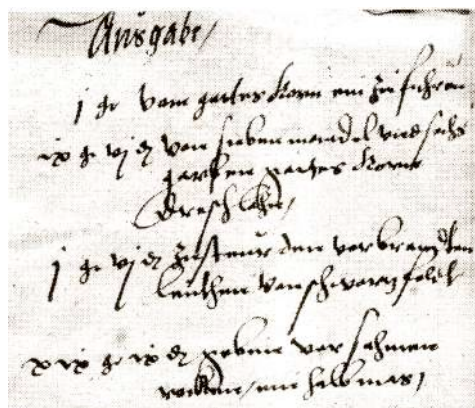 Ausgabe /
j gr vom garten Korn ein Zu fuhren
ix gr vj ₰ von sieben mandel vnd sechs
garben garten Korn
Dresch lohn /
j gr vj ₰ Zusteur den verbrandten
leuthen von schwartzfeldt
xix gr ix ₰ geben vor sahmen
rocken / ein halb mas /